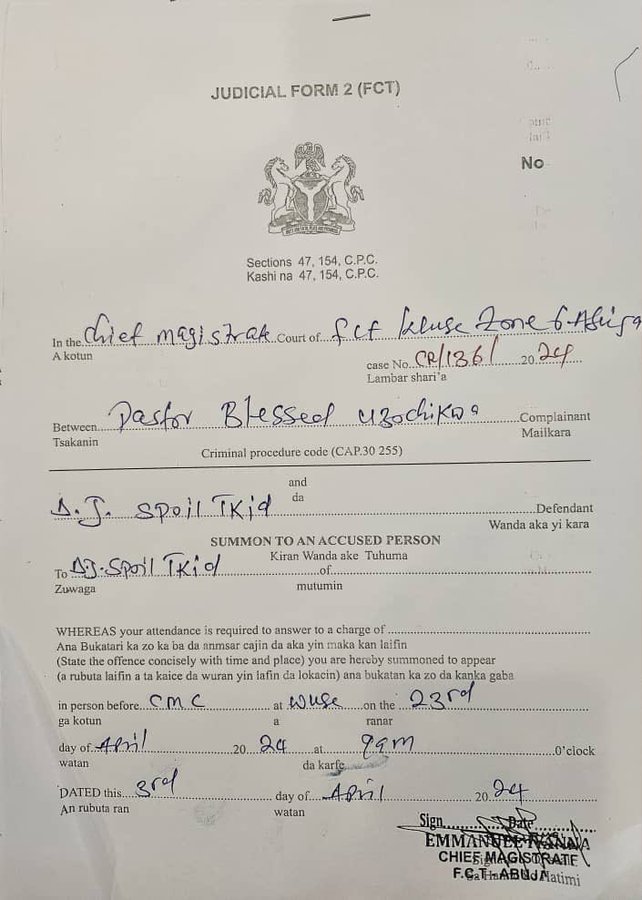 JUDICIAL FORM 2 (FCT)
No
Sections 47, 154, C.P.C.
Kashi na 47, 154, C.P.C.
In the Chief magistrate Court of fct Wuse Zone 6-Abuja
A kotun
case No. CR/136/ 2024
Lambar shari'a
Between Pastor Blessed Uzochikwa Complainant
Tsakanin Maiikara
Criminal procedure code (CAP.30 255)
and
da
D.J. SPOIL TKid Defendant
Wanda aka yi kara
SUMMON TO AN ACCUSED PERSON
Kiran Wanda ake Tuhuma
To DJ. SPOIL TKid of
Zuwaga mutumin
WHEREAS your attendance is required to answer to a charge of
Ana Bukatari ka zo ka ba da anmsar cajin da aka yin maka kan laifin
(State the offence concisely with time and place) you are hereby summoned to appear
(a rubuta laifin a ta kaice da wuran yin lafin da lokacin) ana bukatan ka zo da kanka gaba
in person before CMC at Wuse on the 23rd
ga kotun a ranar
day of April 2024 at 9am O'clock
watan da karfe
DATED this 3rd day of April 2024
An rubuta ran watan
Sign Date
EMMANUEL NNANNA
CHIEF MAGISTRATE
F.C.T - ABUJA